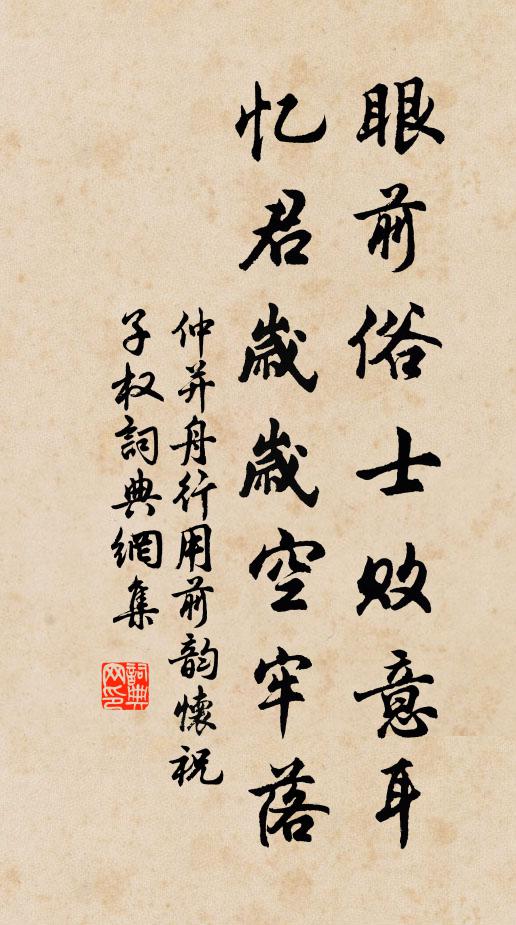 眼前俗士败意耳
忆君歲歲空牢落
仲并舟行用前韵懷祝
子权詞典網集
詞典
网印